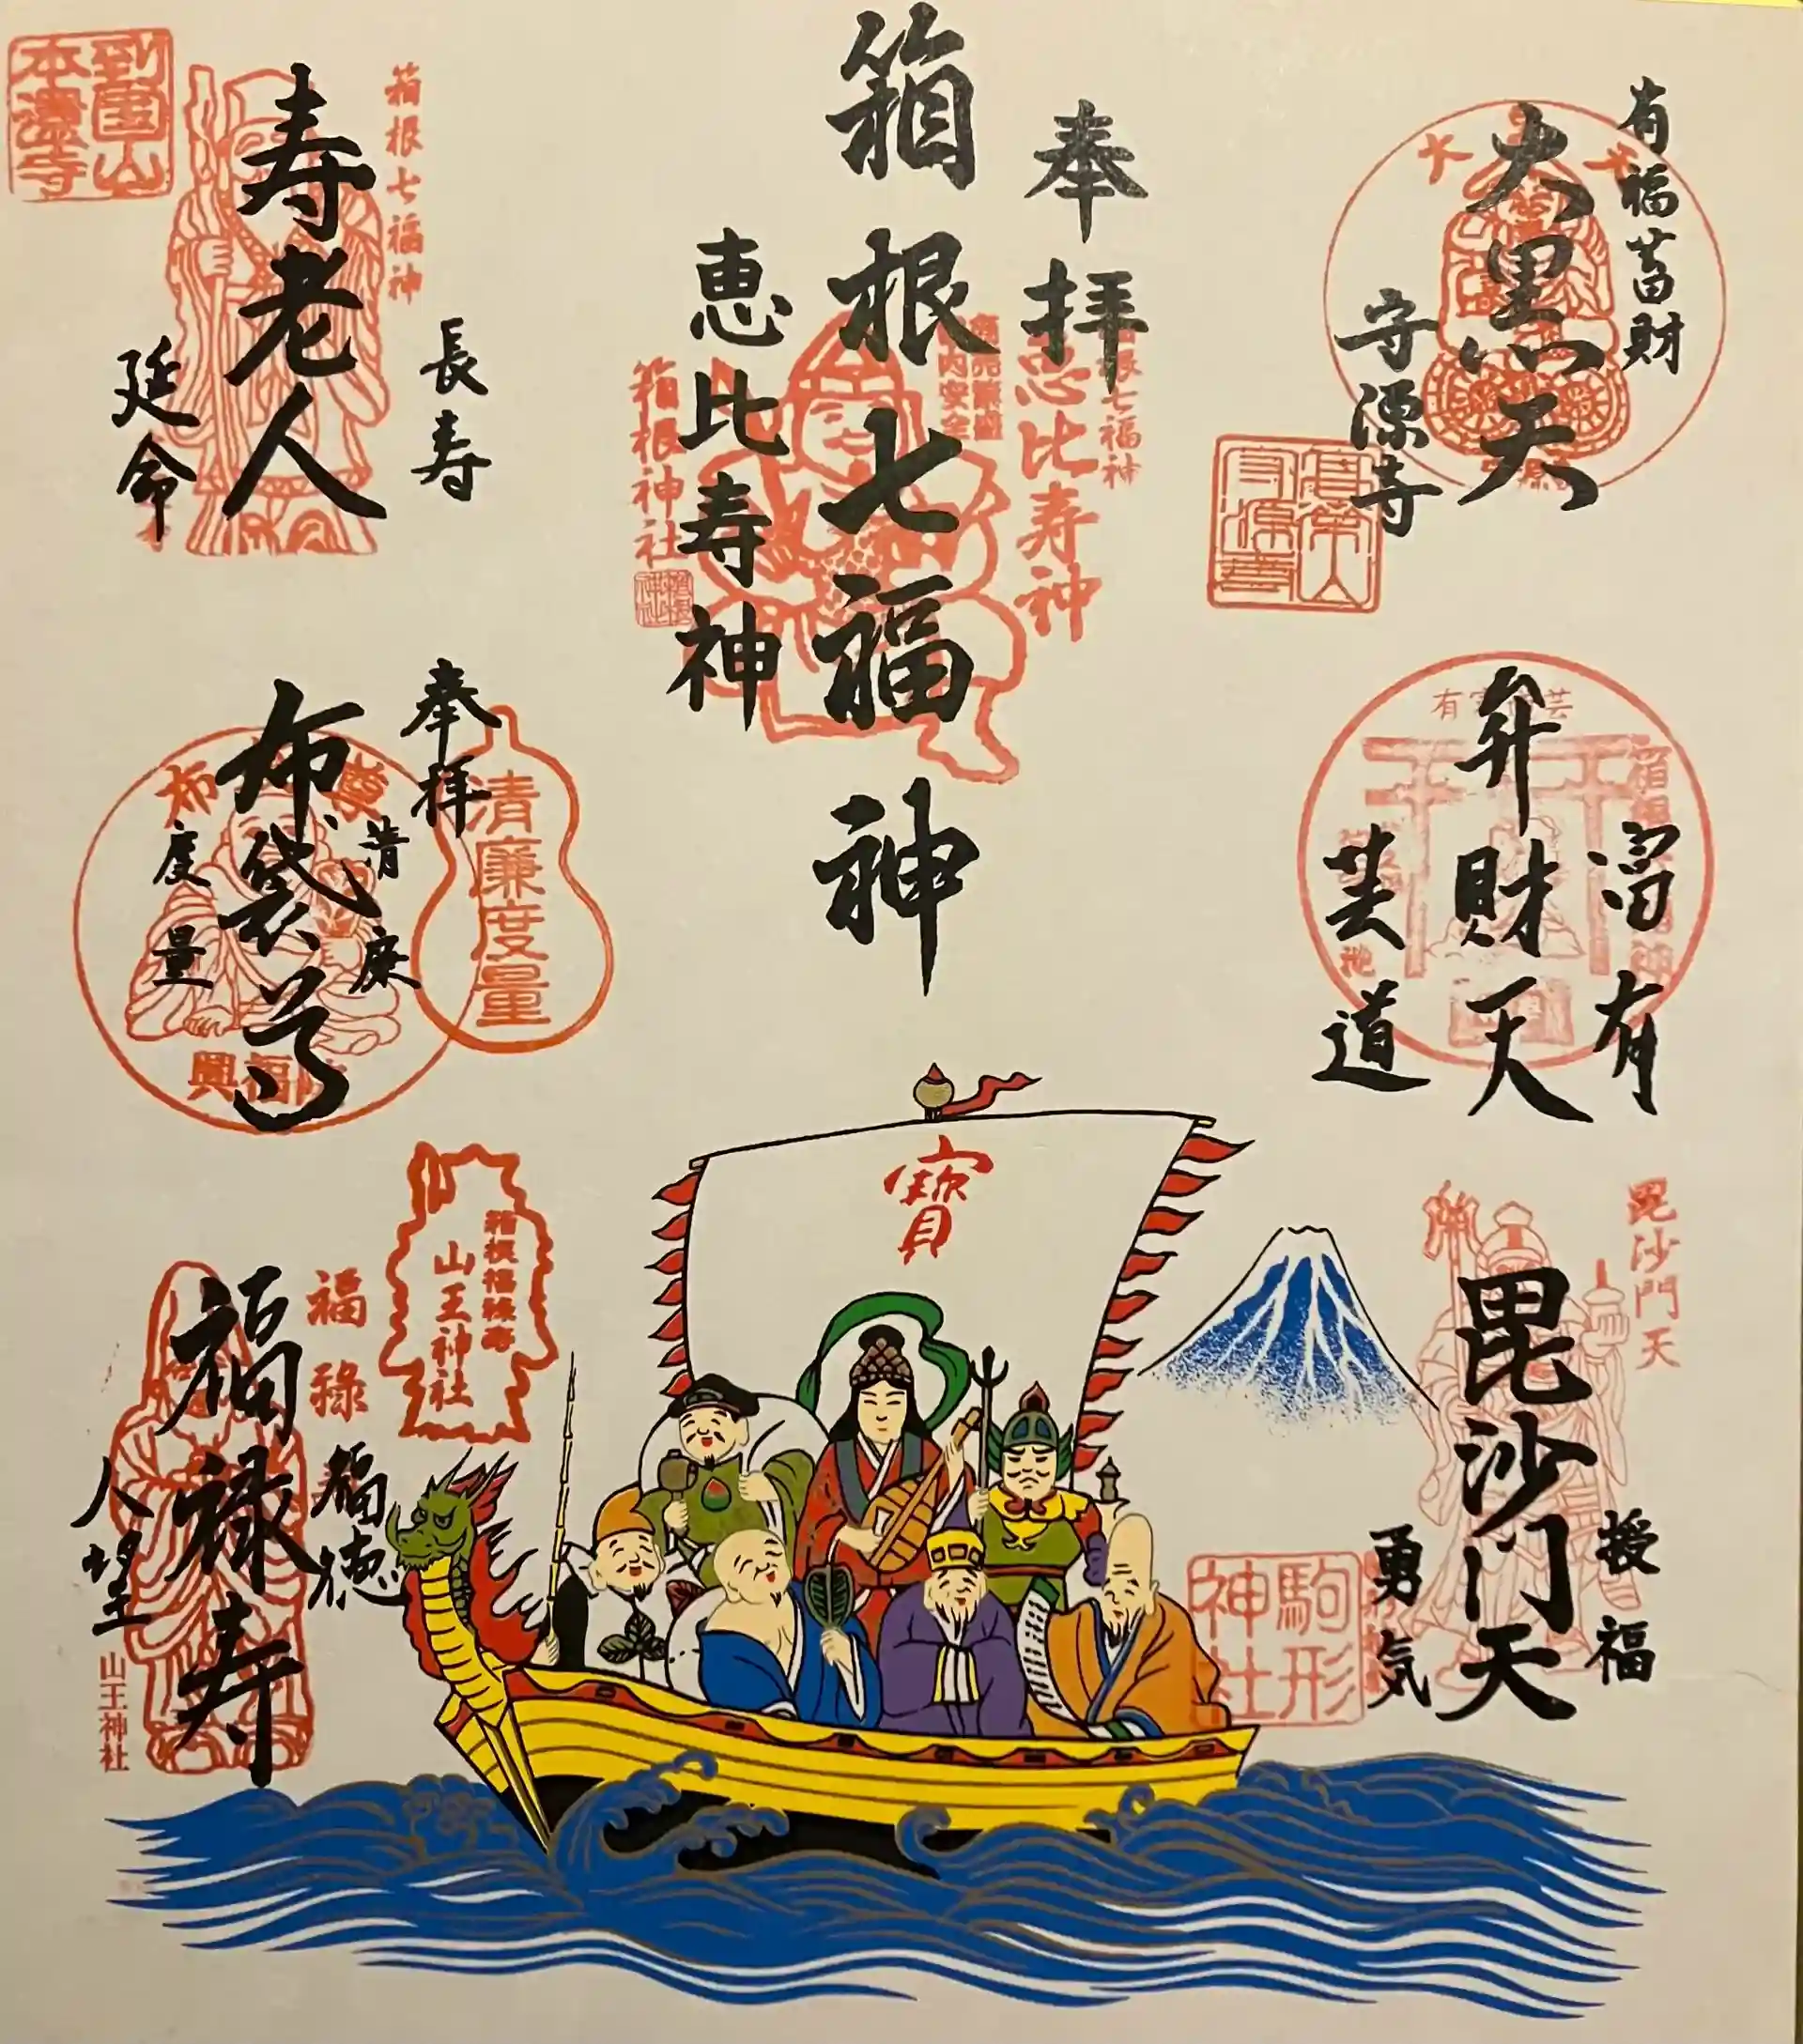 有福蓄財
大黒天
守源寺
大
天
奉拝
箱根七福神
恵比寿神
恵比寿神
箱根神社
箱根七福神
寿老人
長寿
延命
到富山
本還寺
富有
弁財天
芸道
奉拝
清廉
布袋尊
度量
清廉度量
布
尊
興福院
寶
毘沙門天
毘沙門天
授福
勇気
駒形
神社
山王神社
福禄
福徳
福禄寿
人望
山王神社